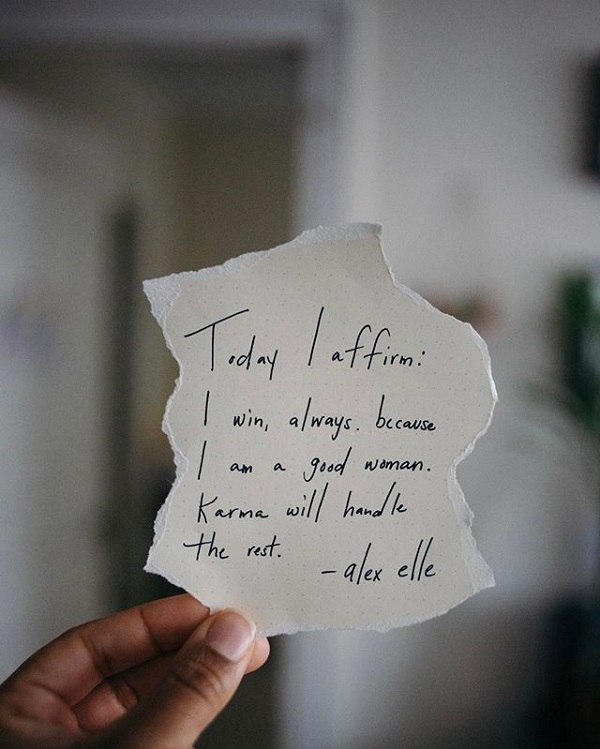 Today I affirm:
I win, always. because
I am a good woman.
Karma will handle
the rest.
–alex elle